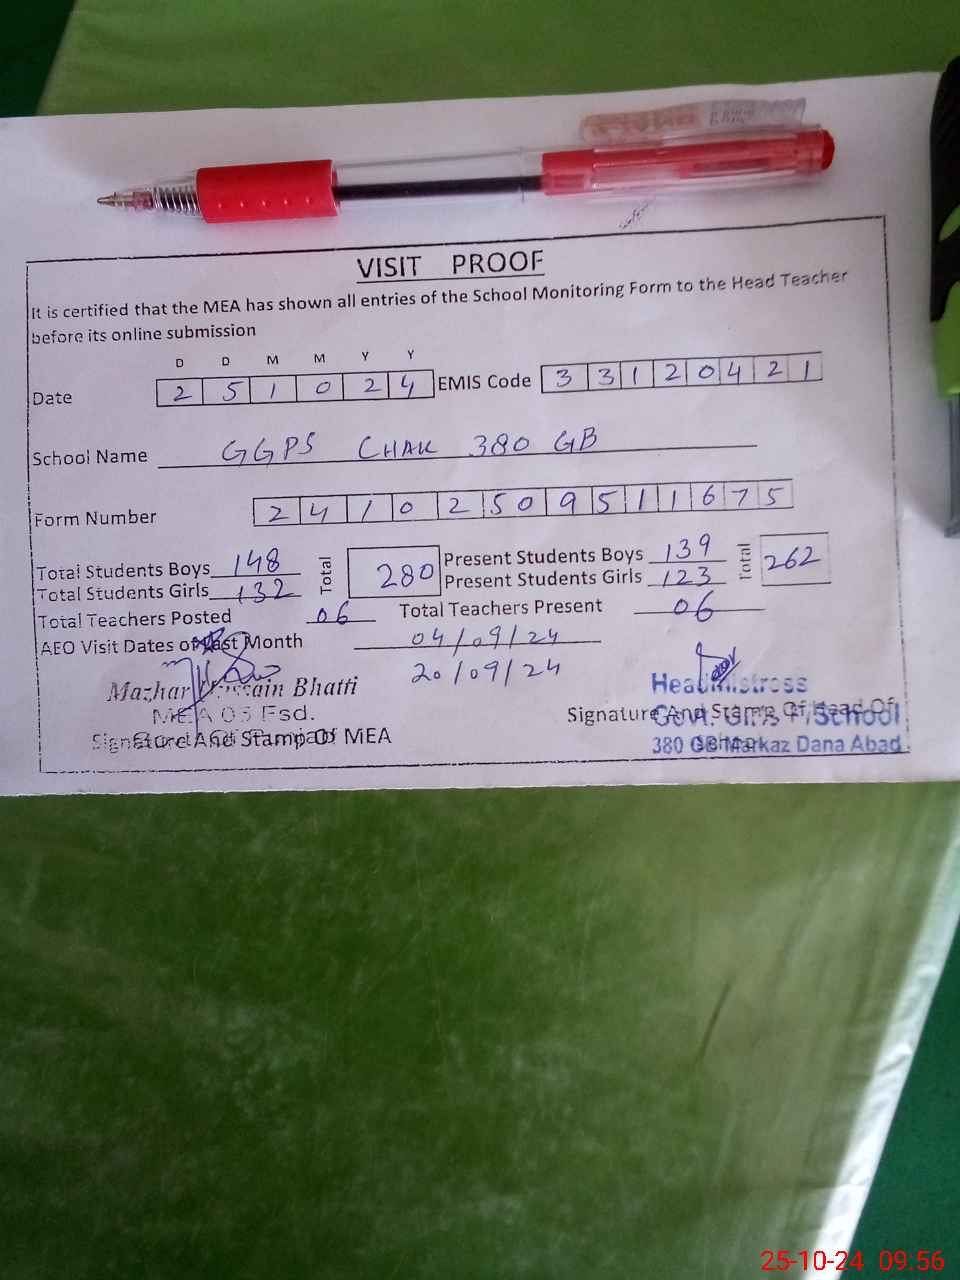 VISIT PROOF
It is certified that the MEA has shown all entries of the School Monitoring Form to the Head Teacher
before its online submission
D D M M Y Y
Date 2 5 1 0 2 4 EMIS Code 3 3 1 2 0 4 2 1
School Name GGPS CHAK 380 GB
Form Number 2 4 1 0 2 5 0 9 5 1 1 6 7 5
Total Students Boys 148 Total 280 Present Students Boys 139 Total 262
Total Students Girls 132 Present Students Girls 123
Total Teachers Posted 06 Total Teachers Present 06
AEO Visit Dates of Last Month 04/09/24
20/09/24
Mazhar Hussain Bhatti Headmistress
MEA 05 Fsd. Signature And Stamp Of Head Of
Govt. Girls P/School
Signature And Stamp Of MEA 380 GB Markaz Dana Abad
25-10-24 09:56